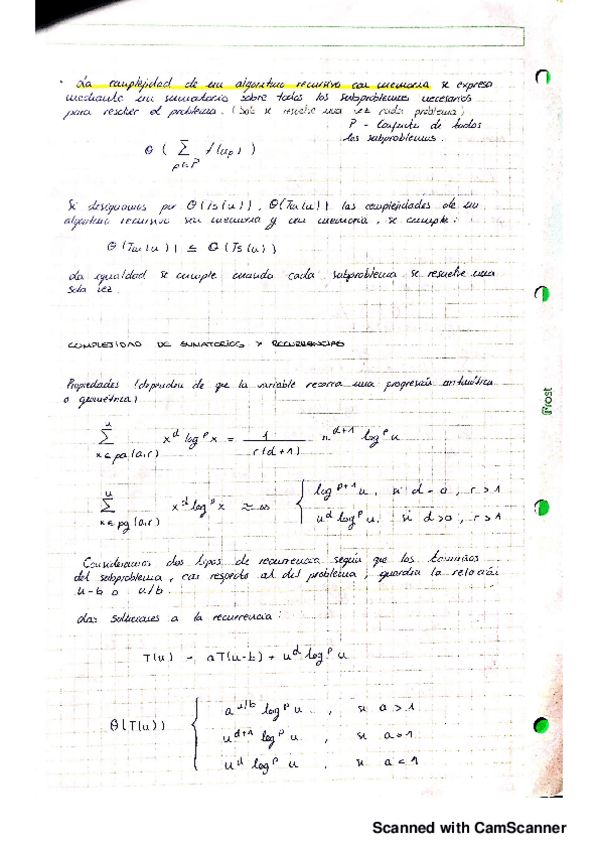 · La complejidad de un algoritmo recursivo con memoria se expresa
mediante un sumatorio sobre todos los subproblemas necesarios
para resolver el problema. (Solo se resuelve una vez cada problema)
P - Conjunto de todos
los subproblemas.
Θ ( Σ p∈P f(n_p) )
Si designamos por Θ(Ts(n)), Θ(Tm(n)) las complejidades de un
algoritmo recursivo sin memoria y con memoria, se cumple:
Θ(Tm(n)) ≤ Θ(Ts(n))
La igualdad se cumple cuando cada subproblema se resuelve una
sola vez.
COMPLEJIDAD DE SUMATORIOS Y RECURRENCIAS
Propiedades (dependen de que la variable recorra una progresión aritmética
o geométrica)
Σ^n x∈pa(a,r) x^d log^p x = 1 / r(d+1) n^{d+1} log^p n
Σ^n x∈pg(a,r) x^d log^p x ≈∞ { log^{p+1} n, si d=0, r>1
n^d log^p n, si d>0, r>1
Consideramos dos tipos de recurrencia según que los tamaños
del subproblema, con respecto al del problema, guarden la relación
n-b o n/b.
Las soluciones a la recurrencia:
T(n) = aT(n-b) + n^d log^p n
Θ(T(n)) { a^{n/b} log^p n, si a>1
n^{d+1} log^p n, si a=1
n^d log^p n, si a<1
Frost
Scanned with CamScanner